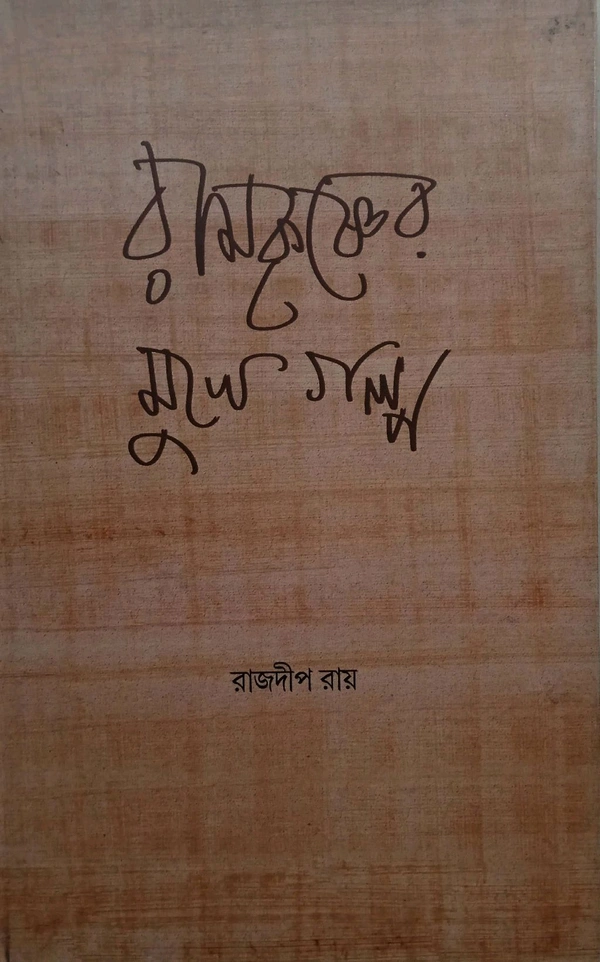 রামকৃষ্ণের
মুখে গল্প
রাজদীপ রায়